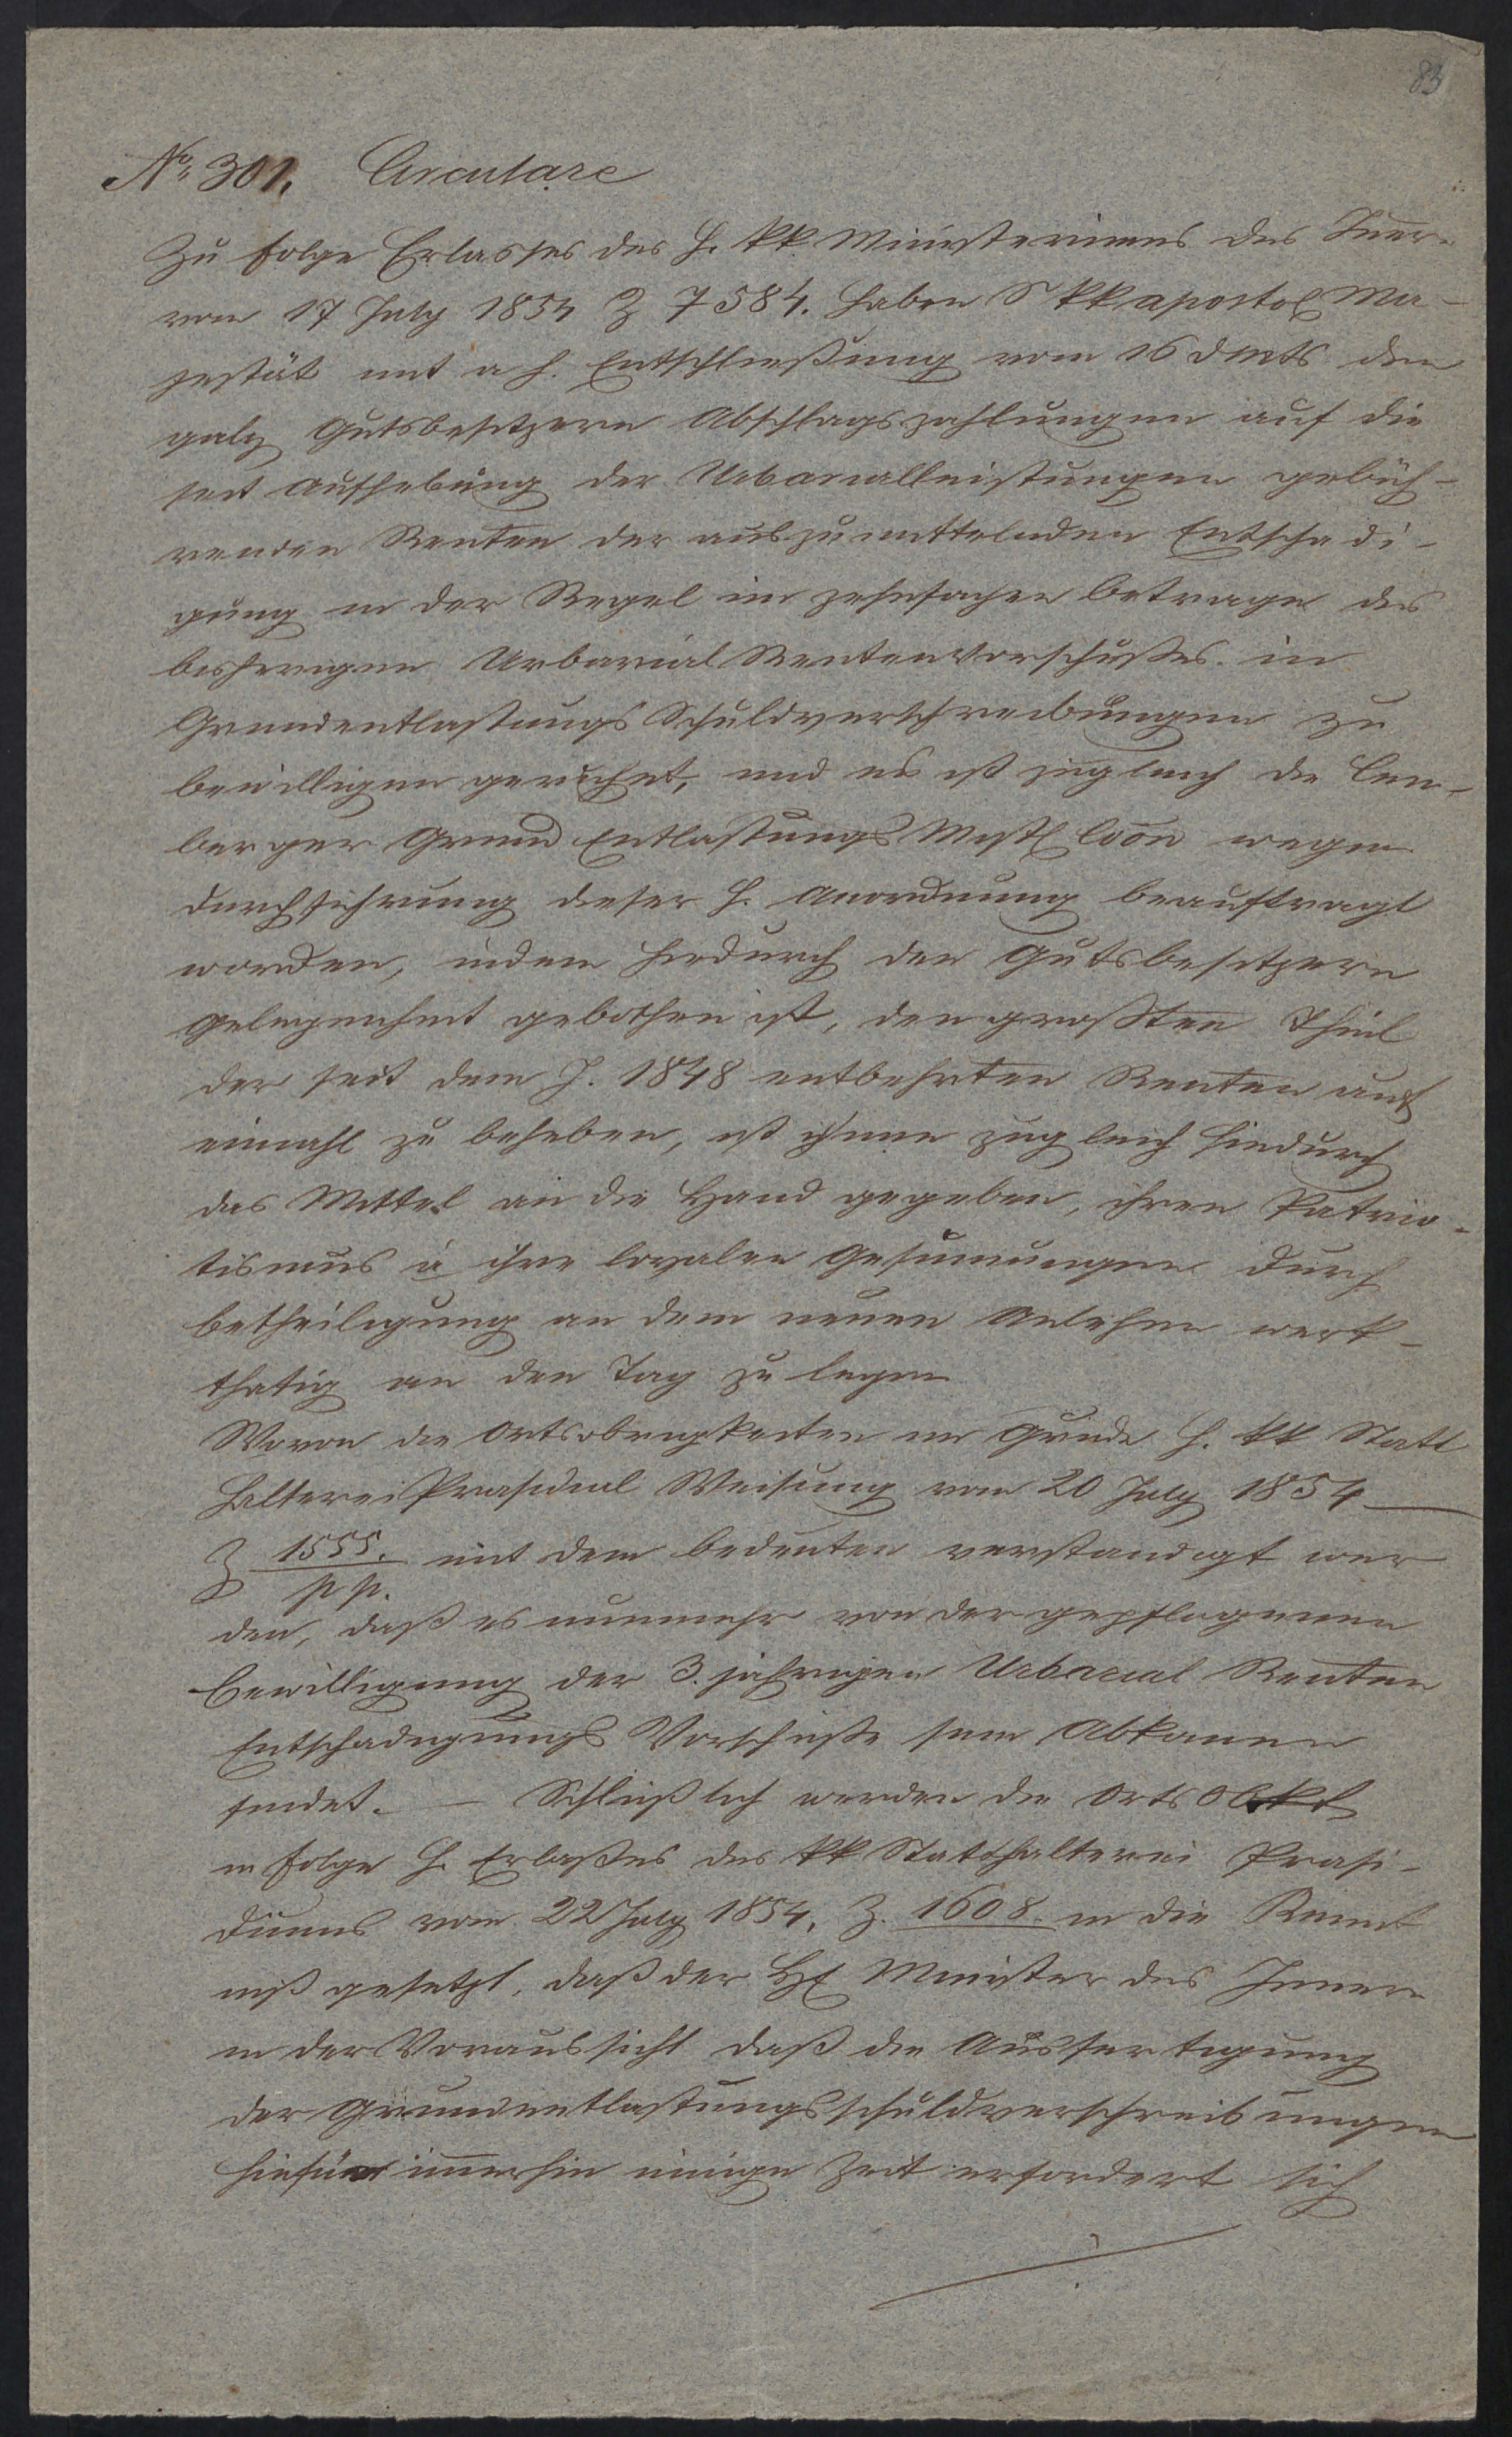 83
No 301. Circulare
Zu folge Erlasses des h. kk Ministeriums des Innern
vom 17 July 1854 Z 7584. haben S kk apostol Ma-
jestät mit a h. Entschließung vom 16 d Mts den
galiz Gutsbesitzern Abschlagszahlungen auf die
seit Aufhebung der Urbarialleistungen gebüh-
renden Renten der auszumittelnden Entschadi-
gung in der Regel im zehnfachen Betrage des
bisherigen Urbarial Rentenvorschußes in
Grundentlastungs Schuldverschreibungen zu
bewilligen geruhet, und es ist zugleich die Lem-
berger Grund Entlastungs Mistl Coon wegen
Durchführung dieser h. Anordnung beauftragt
worden, indem hiedurch den Gutsbesitzern
Gelegenheit gebothen ist, den großten Theil
der seit dem J. 1848 entbehrten Renten auf
einmahl zu beheben, ist ihnen zugleich hiedurch
das Mittel an die Hand gegeben, ihren Patrio-
tismus u ihre loyalen Gesinnungen durch
Betheiligung an dem neuen Anlehen werk-
thatig an den Tag zu legen
Wovon die Ortsobrigkeiten im Grunde h. kk Statt
halterei Prasidial Weisung vom 20 July 1854
Z 1555./pp. mit dem Bedeuten verstandigt wer
den, daß es nunmehr von der gepflogenen
Bewilligung der 3. jahrigen Urbarial Renten
Entschadigungs Vorschuße sein Abkommen
findet. – Schließlich werden die Orts Obkt
in Folge h. Erlaßes des kk Statthalterei Prasi-
diums vom 22 July 1854, Z. 1608. in die Kennt
niß gesetzt, daß der H Minister des Innern
in der Voraussicht daß die Ausfertigung
der Grundentlastungsschuldverschreibungen
hiefür immerhin einige Zeit erfordert sich